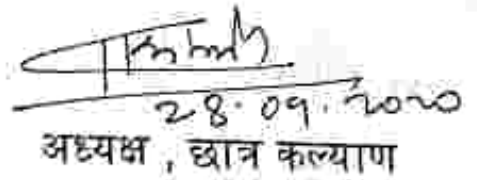 28.09.2020
अध्यक्ष , छात्र कल्याण